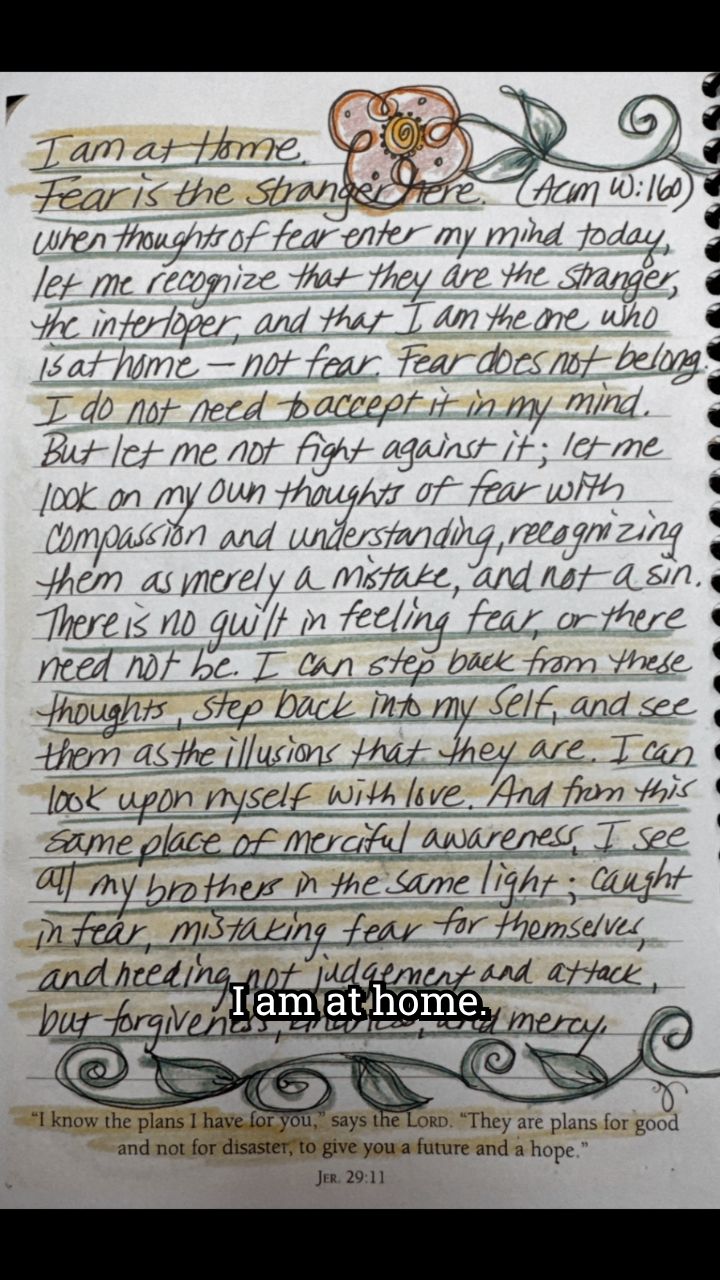 I am at Home.
Fear is the stranger here. (Acim W:160)
When thoughts of fear enter my mind today,
let me recognize that they are the stranger,
the interloper, and that I am the one who
is at home – not fear. Fear does not belong.
I do not need to accept it in my mind.
But let me not fight against it; let me
look on my own thoughts of fear with
compassion and understanding, recognizing
them as merely a mistake, and not a sin.
There is no guilt in feeling fear, or there
need not be. I can step back from these
thoughts, step back into my Self, and see
them as the illusions that they are. I can
look upon myself with love. And from this
same place of merciful awareness, I see
all my brothers in the same light; caught
in fear, mistaking fear for themselves,
and needing not judgement and attack,
I am at home.
but forgiveness, and mercy.
"I know the plans I have for you," says the LORD. "They are plans for good
and not for disaster, to give you a future and a hope."
JER. 29:11